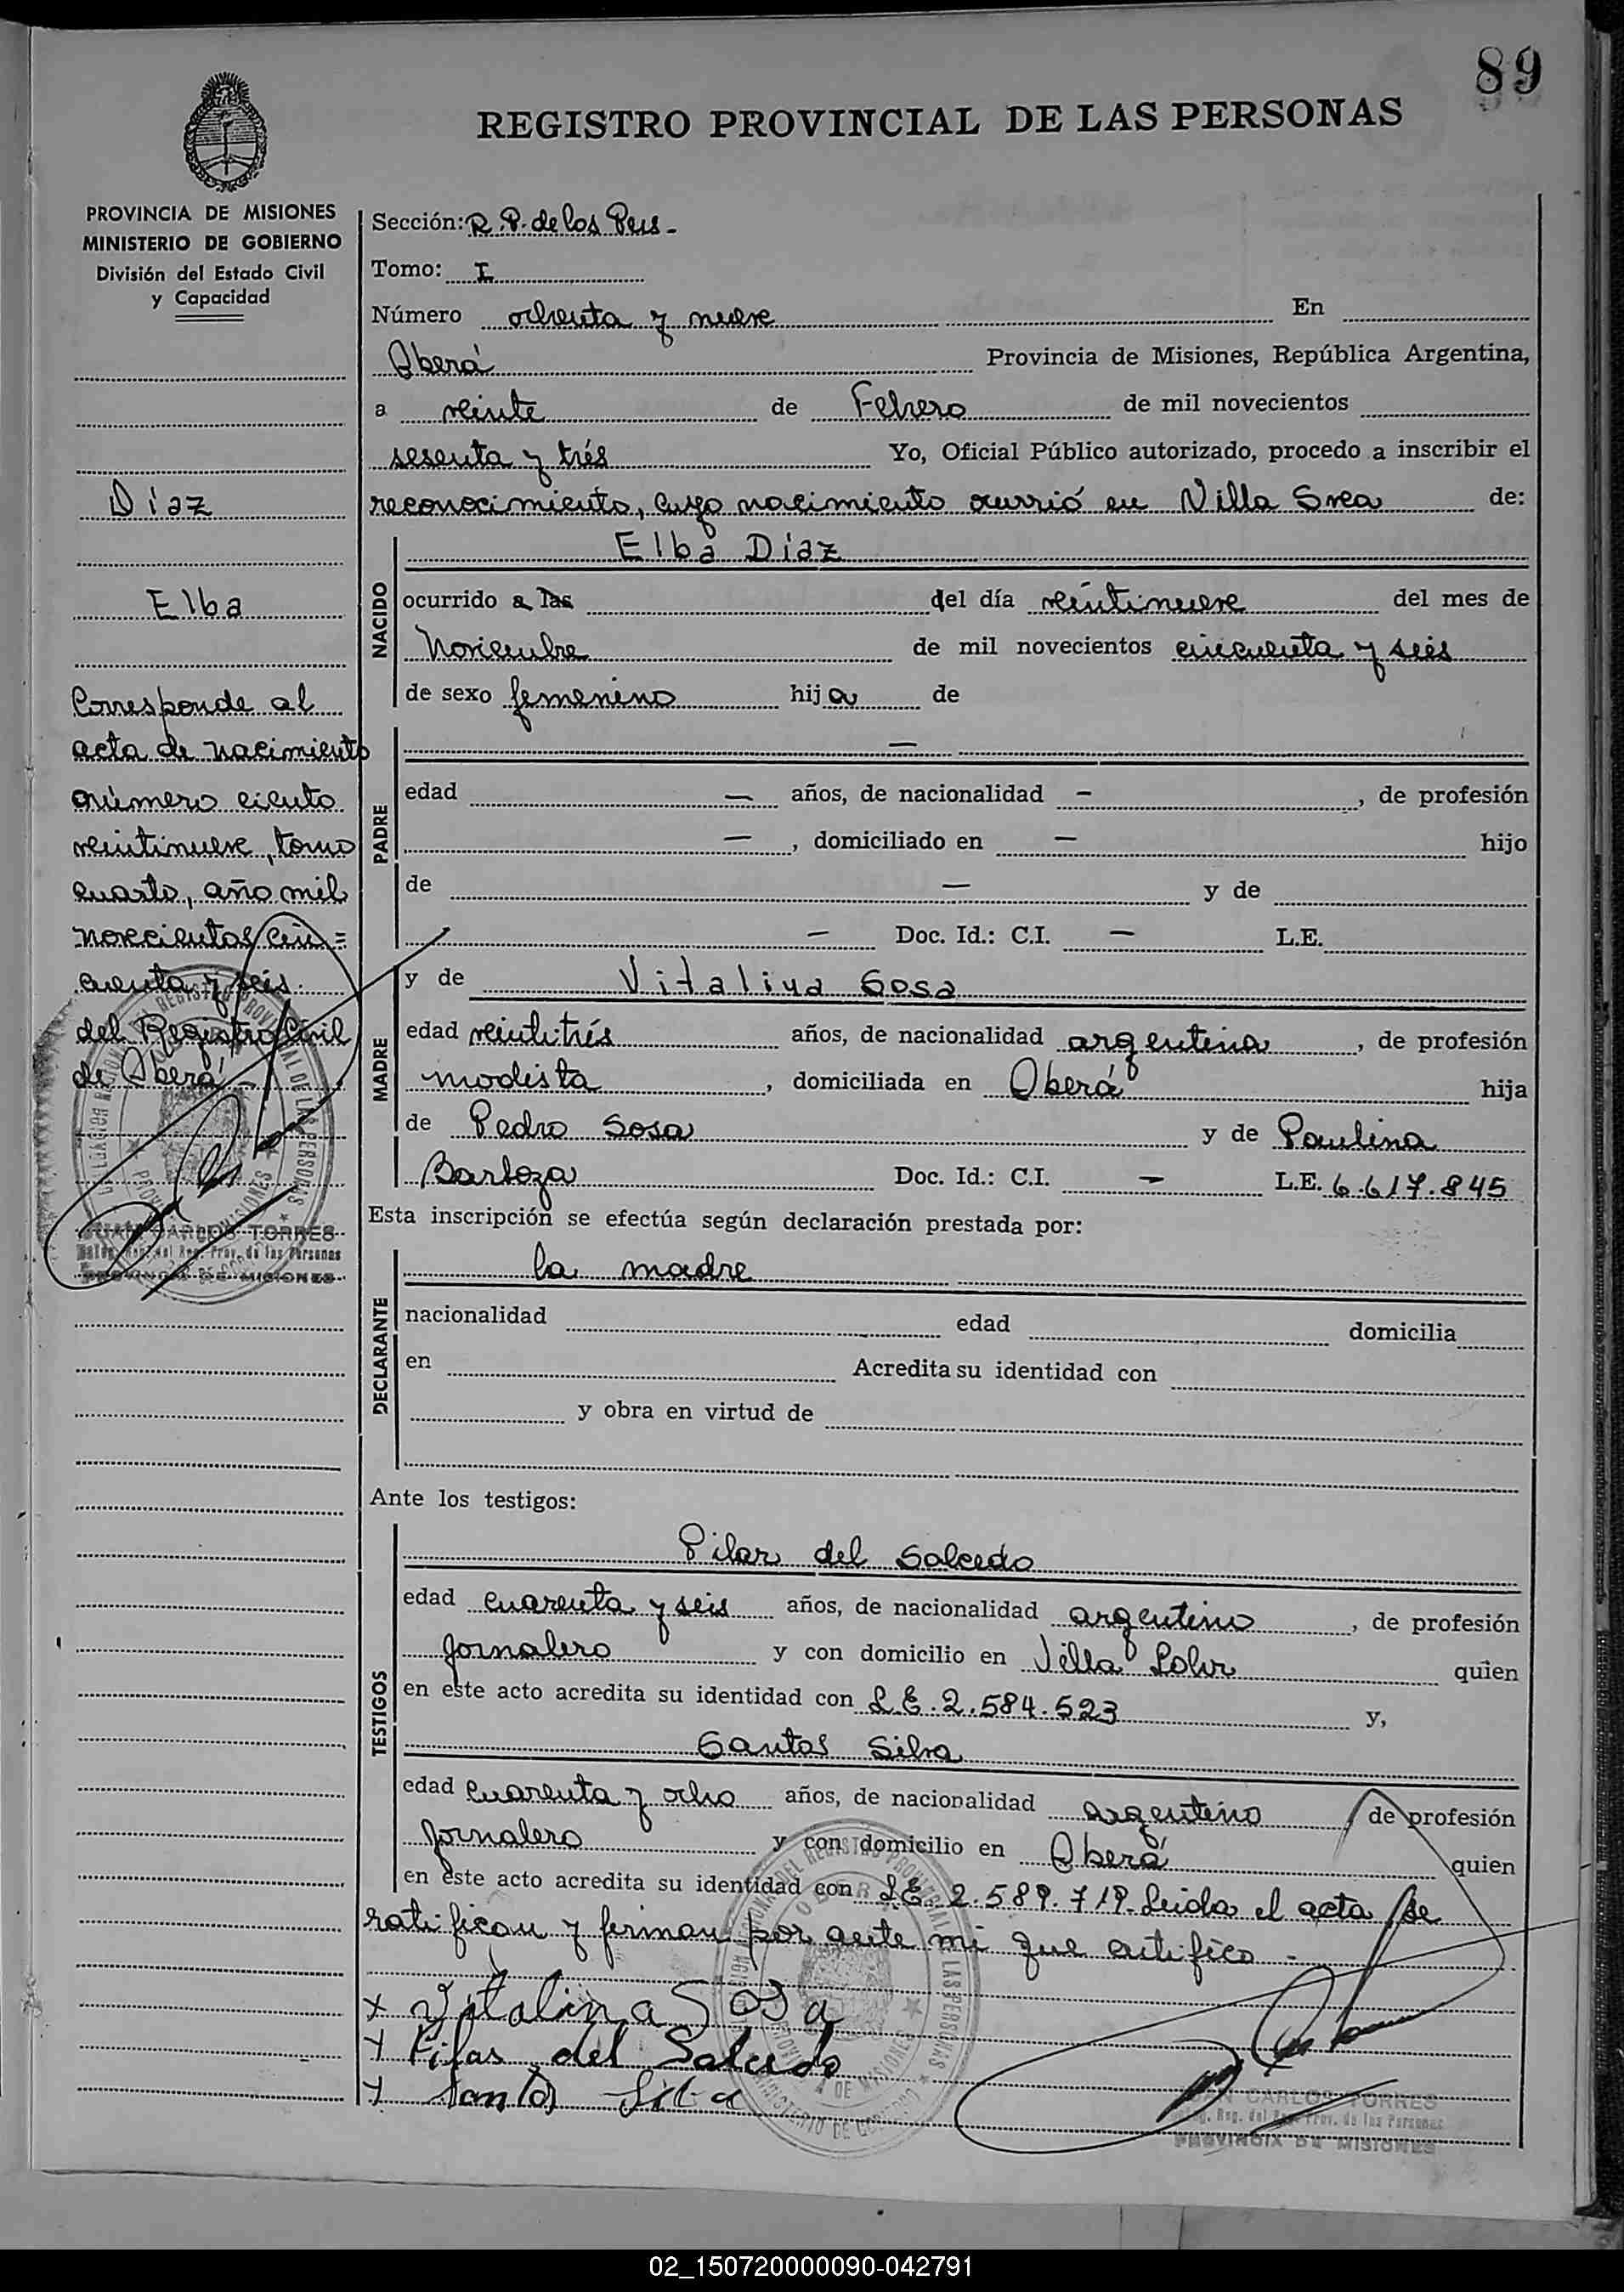 89
REGISTRO PROVINCIAL DE LAS PERSONAS
PROVINCIA DE MISIONES
MINISTERIO DE GOBIERNO
División del Estado Civil
y Capacidad
Díaz
Elba
Corresponde al
acta de nacimiento
número ciento
veintinueve, tomo
cuarto, año mil
novecientos cin=
cuenta y seis.
del Registro Civil
de Oberá -
JUAN CARLOS TORRES
Deleg. Reg. del Reg. Prov. de las Personas
PROVINCIA DE MISIONES
Sección: R.P. de las Pers -
Tomo: I
Número ochenta y nueve En
Oberá Provincia de Misiones, República Argentina,
a veinte de Febrero de mil novecientos
sesenta y trés Yo, Oficial Público autorizado, procedo a inscribir el
reconocimiento, cuyo nacimiento ocurrió en Villa Svea de:
NACIDO
Elba Díaz
ocurrido a las del día veintinueve del mes de
Noviembre de mil novecientos cincuenta y seis
de sexo femenino hija de
PADRE
—
edad — años, de nacionalidad — , de profesión
— , domiciliado en — hijo
de — y de
— Doc. Id.: C.I. — L.E.
MADRE
y de Vitalina Sosa
edad veintitrés años, de nacionalidad argentina , de profesión
modista , domiciliada en Oberá hija
de Pedro Sosa y de Paulina
Barboza Doc. Id.: C.I. — L.E. 6.617.845
Esta inscripción se efectúa según declaración prestada por:
DECLARANTE
la madre
nacionalidad edad domicilia
en Acredita su identidad con
y obra en virtud de
Ante los testigos:
TESTIGOS
Pilar del Salcedo
edad cuarenta y seis años, de nacionalidad argentino , de profesión
Jornalero y con domicilio en Villa quien
en este acto acredita su identidad con L.E. 2.584.523 y,
Santos Silva
edad cuarenta y ocho años, de nacionalidad argentino de profesión
Jornalero y con domicilio en Oberá quien
en este acto acredita su identidad con L.E. 2.589.719. Leida el acta, se
ratifican y firman por ante mi que certifico -
x Vitalina Sosa
x Pilar del Salcedo
x Santos Silva
JUAN CARLOS TORRES
Deleg. Reg. del Reg. Prov. de las Personas
PROVINCIA DE MISIONES
02_150720000090-042791